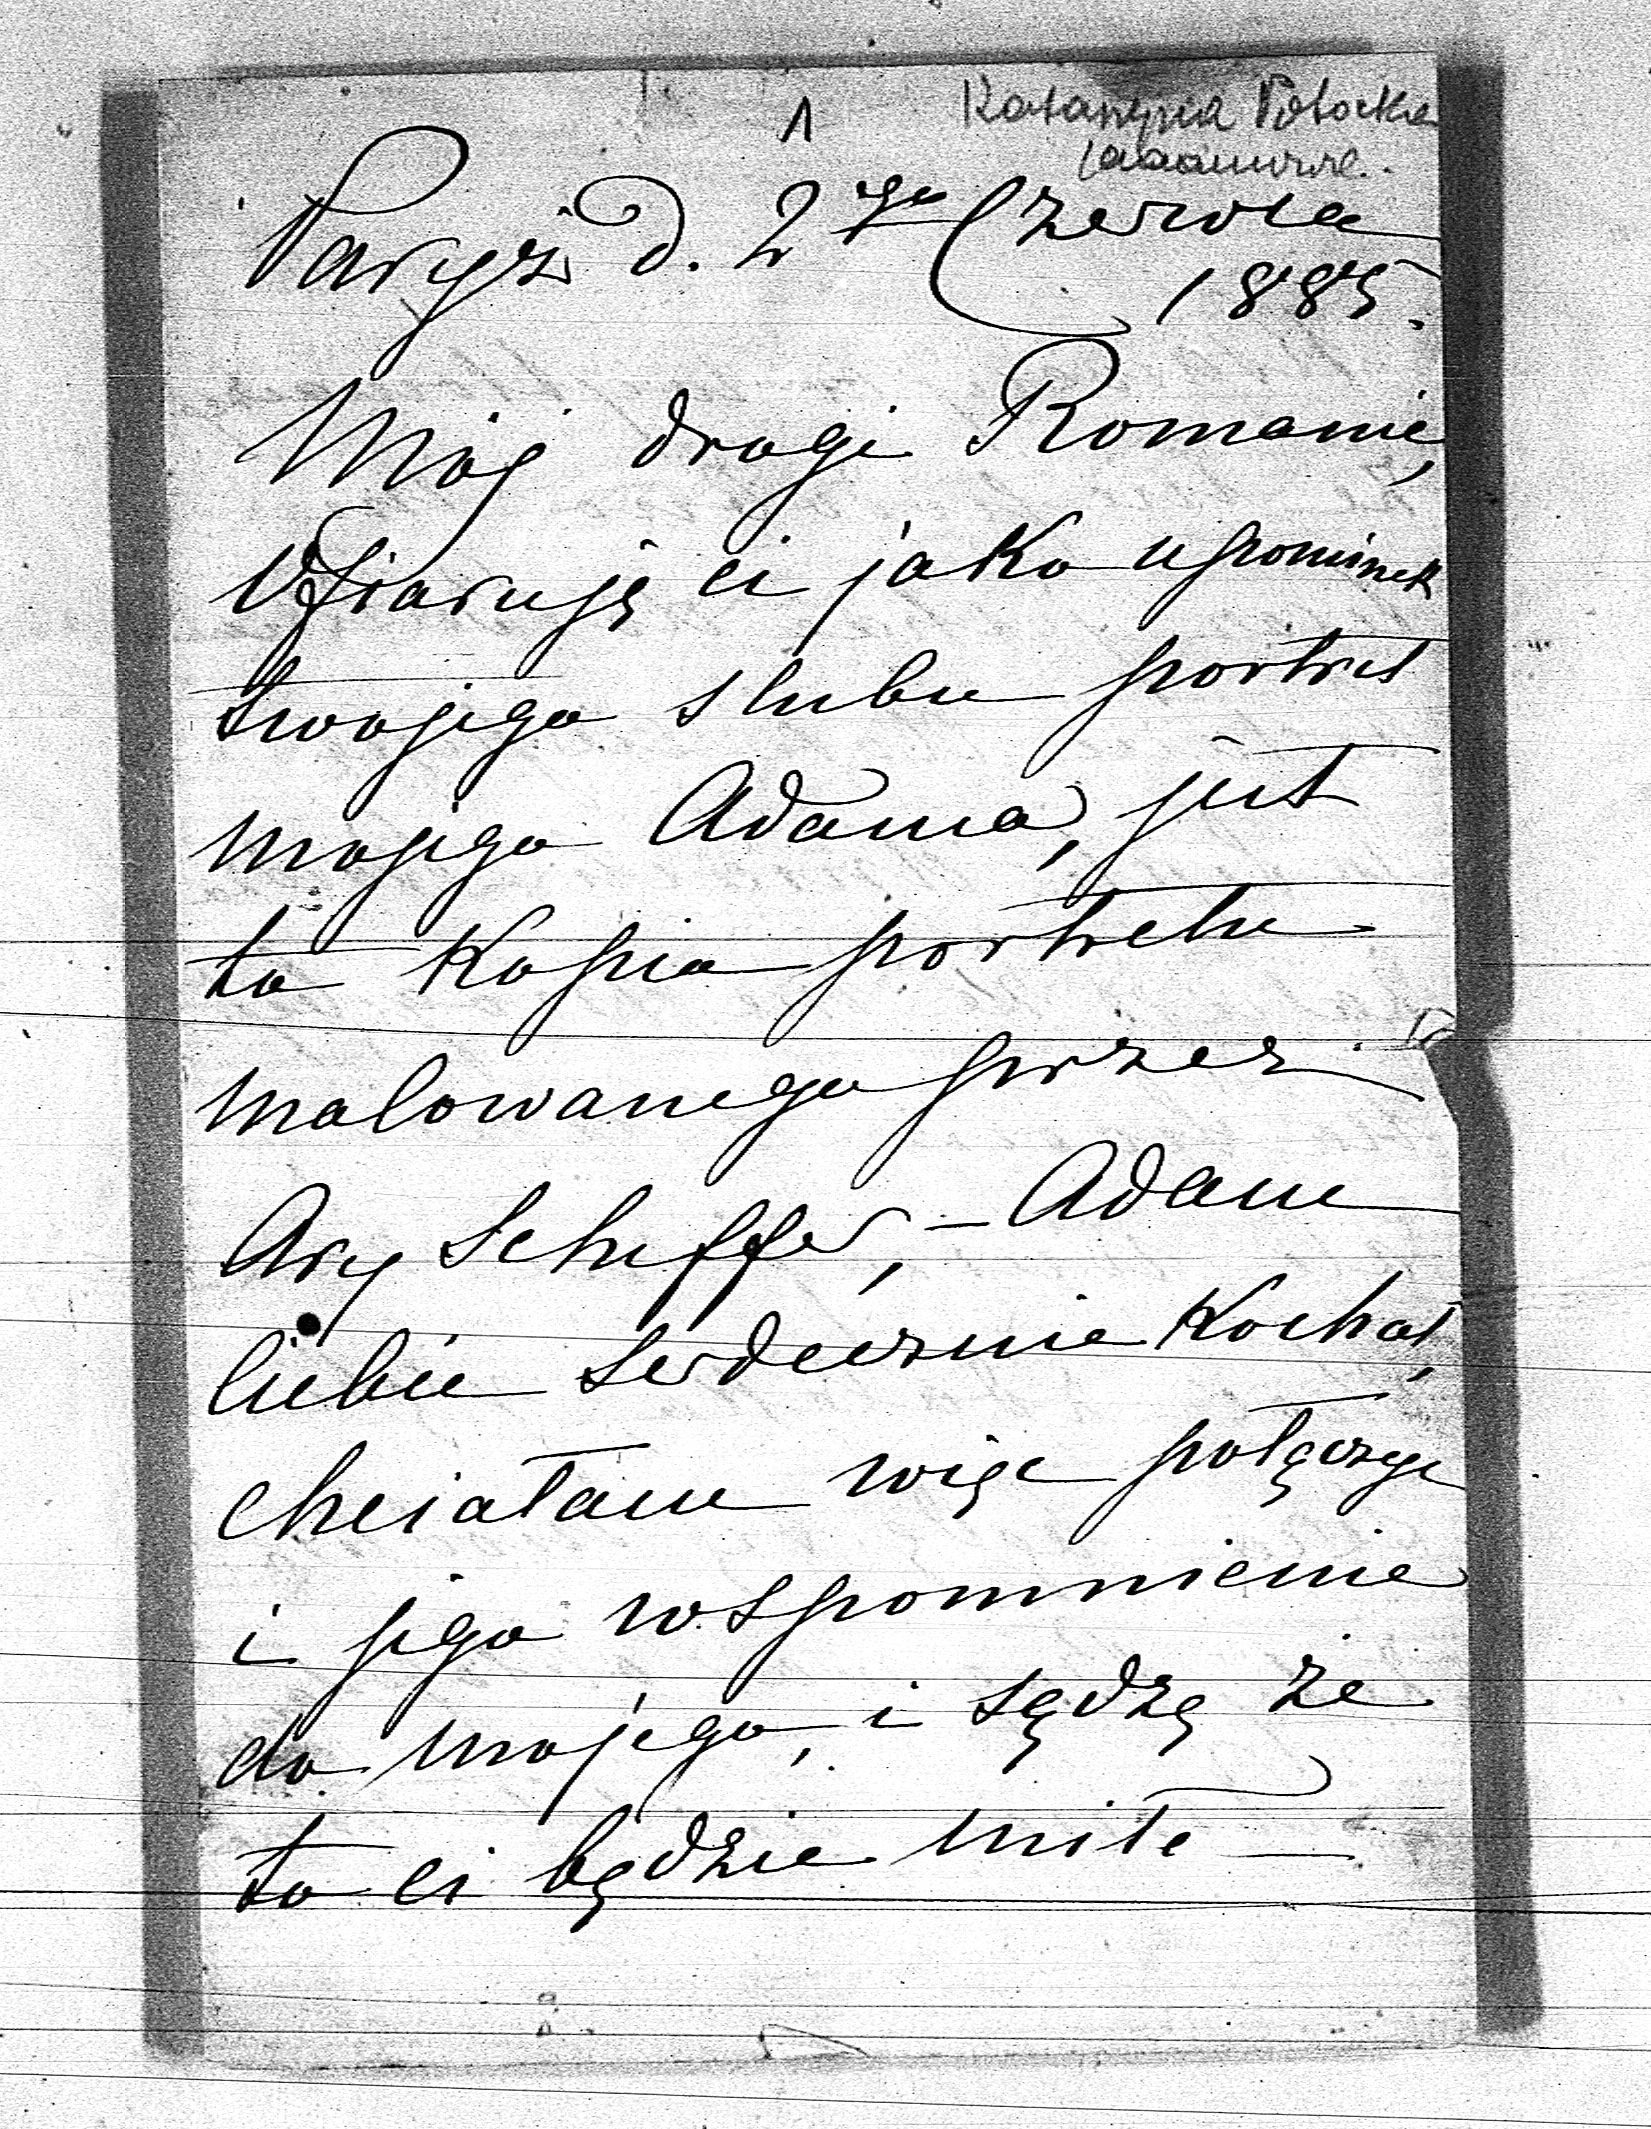 1
Katarzyna Potocka
Paryż d. 2go Czerwca
1885.
Mój drogi Romanie,
Ofiaruję ci jako upominek
twojego slubu portret
mojego Adama, jest
to Kopia portretu
malowanego przez
Ary Scheffer, – Adam
Ciebie serdecznie Kochał,
chciałam więc połączyć
i jego wspomnienie
do mojego, i sądzę że
to ci będzie miłe —